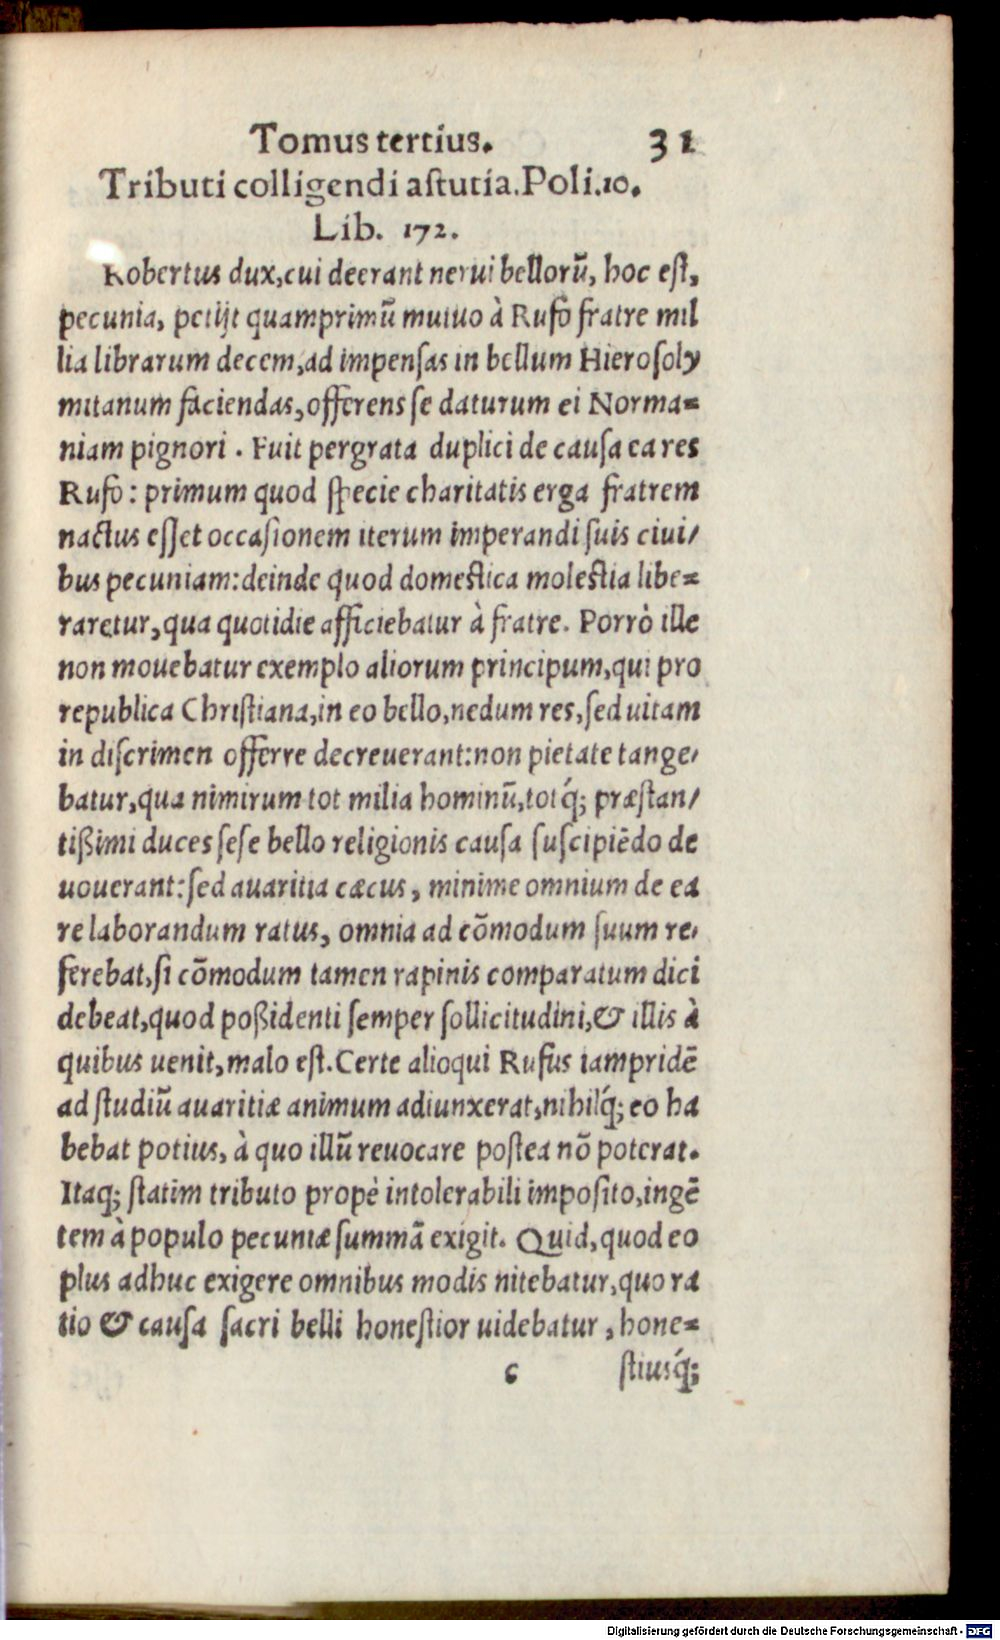 Tomus tertius. 31
Tributi colligendi astutia. Poli. 10.
Lib. 172.
Robertus dux, cui deerant nerui bellorū, hoc est,
pecunia, petijt quamprimū mutuo à Rufo fratre mil
lia librarum decem, ad impensas in bellum Hierosoly
mitanum faciendas, offerens se daturum ei Norma=
niam pignori. Fuit pergrata duplici de causa ea res
Rufo: primum quod specie charitatis erga fratrem
nactus esset occasionem iterum imperandi suis ciui/
bus pecuniam: deinde quod domestica molestia libe=
raretur, qua quotidie afficiebatur à fratre. Porrò ille
non mouebatur exemplo aliorum principum, qui pro
republica Christiana, in eo bello, nedum res, sed uitam
in discrimen offerre decreuerant: non pietate tange/
batur, qua nimirum tot milia hominū, totq́; præstan/
tißimi duces sese bello religionis causa suscipiēdo de
uouerant: sed auaritia cæcus, minime omnium de ea
re laborandum ratus, omnia ad cōmodum suum re/
ferebat, si cōmodum tamen rapinis comparatum dici
debeat, quod poßidenti semper sollicitudini, & illis à
quibus uenit, malo est. Certe alioqui Rufus iampridē
ad studiū auaritiæ animum adiunxerat, nihilq́; eo ha
bebat potius, à quo illū reuocare postea nō poterat.
Itaq; statim tributo propè intolerabili imposito, ingē
tem à populo pecuniæ summā exigit. Quid, quod eo
plus adhuc exigere omnibus modis nitebatur, quo ra
tio & causa sacri belli honestior uidebatur, hone=
c stiusq́;
Digitalisierung gefördert durch die Deutsche Forschungsgemeinschaft - DFG